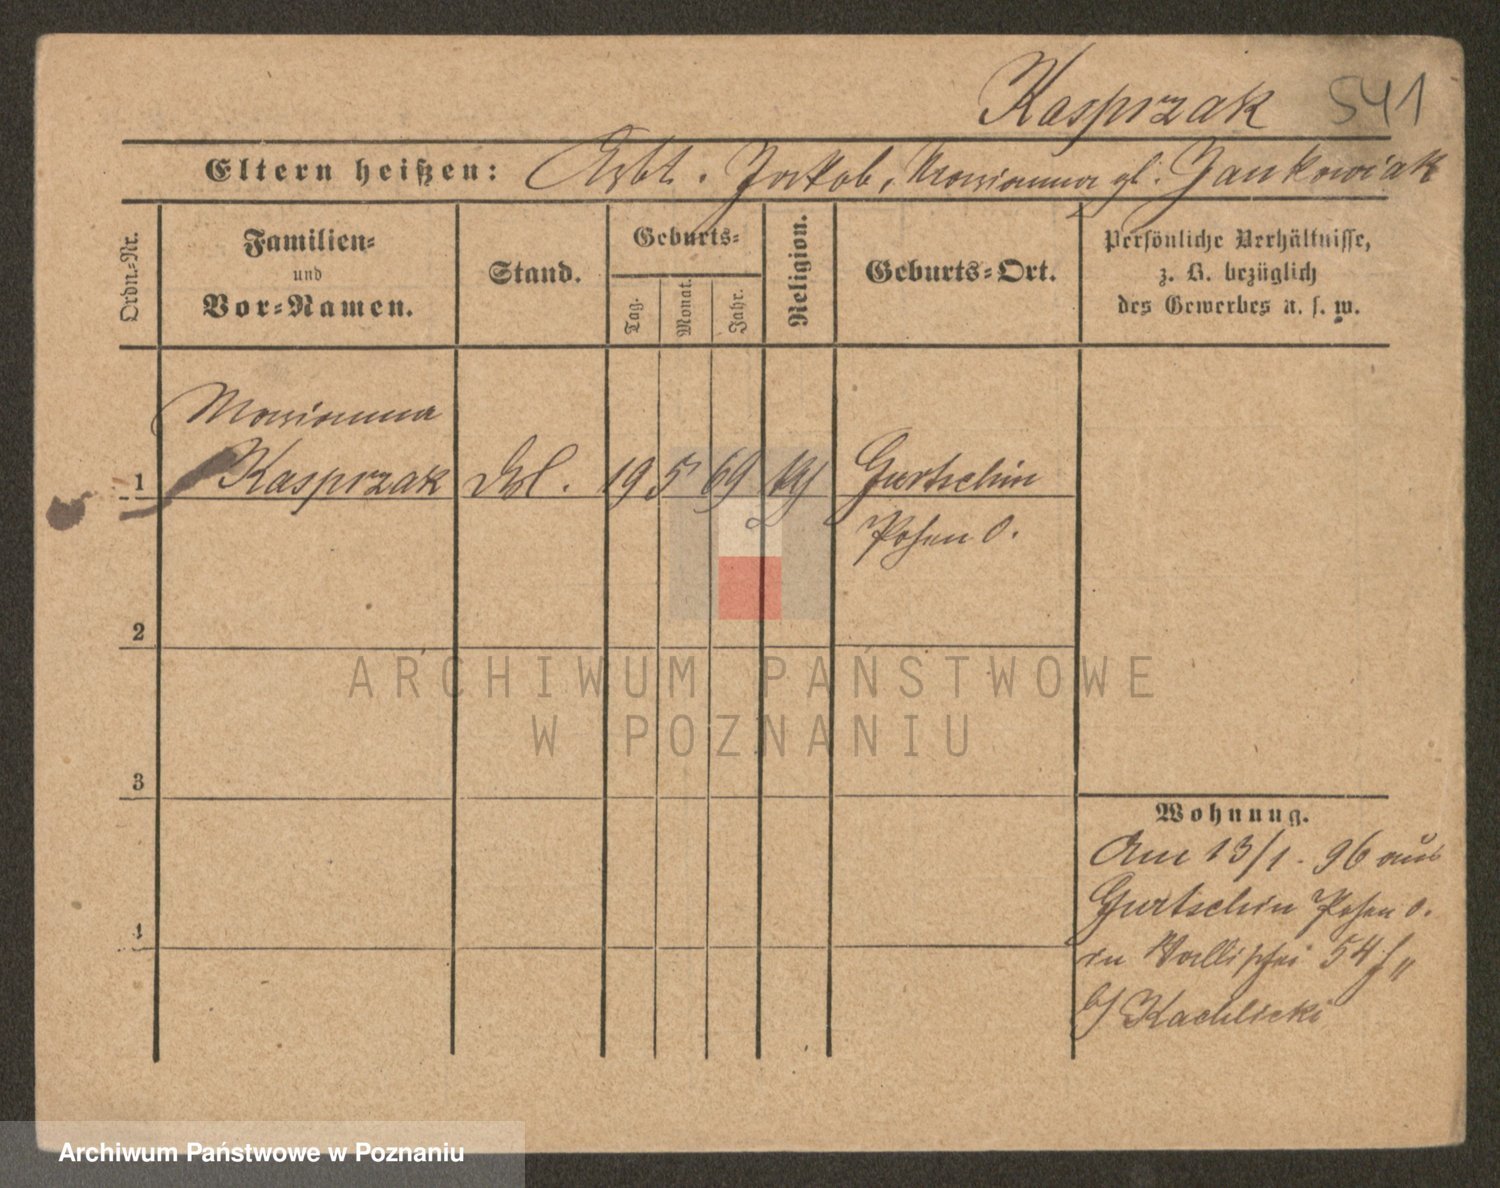 Kasprzak 541
Eltern heißen: Arbt. Jakob, Marianna gb. Jankowiak
Ordn.-Nr.
Familien-
und
Vor-Namen.
Stand.
Geburts-
Tag.
Monat.
Jahr.
Religion.
Geburts-Ort.
Persönliche Verhältnisse,
z. B. bezüglich
des Gewerbes u. s. w.
Marianna
1 Kasprzak 19 5 69 Gurtschin
Posen O.
2
ARCHIWUM PAŃSTWOWE
W POZNANIU
3
Wohnung.
Am 13/1. 96 aus
Gurtschin Posen O.
4
in Wallischei 54
b/ Kachlicki
Archiwum Państwowe w Poznaniu